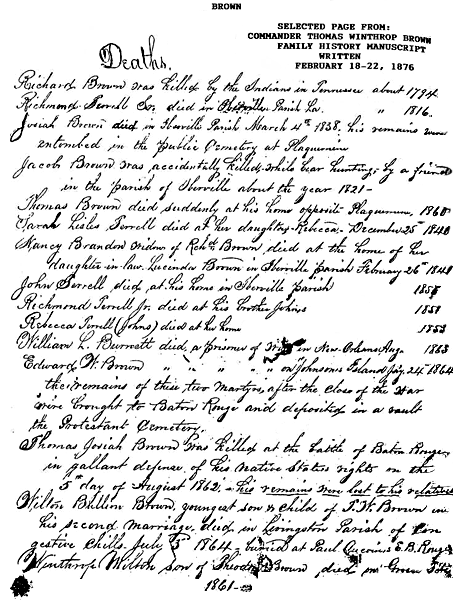 BROWN
SELECTED PAGE FROM:
COMMANDER THOMAS WINTHROP BROWN
FAMILY HISTORY MANUSCRIPT
WRITTEN
FEBRUARY 18-22, 1876
Deaths.
Richard Brown was killed by the Indians in Tennessee about 1794
Richmond Terrell Sr. died in Iberville Parish Lou. " 1816.
Josiah Brown died in Iberville Parish March 4th 1838. his remains were
entombed in the public Cemetery at Plaquemin
Jacob Brown was accidentally killed while bear hunting by a friend
in the parish of Iberville about the year 1821-
Thomas Brown died suddenly at his home opposite Plaquemin, 1860
Sarah Lisles Terrell died at her daughters Rebecca - December 25th 1840
Nancy Brandon widow of Brown, died at the home of her
daughter-in-law Lucinda Brown in Iberville parish February 26th 1841
John Terrell, died at his home in Iberville parish
Richmond Terrell Jr. died at his brother Johns 1851
Rebecca Terrell (Johns) died at her home 1853
William L. Burnett died, a prisoner of War in New-Orleans Aug. 1863
Edward W. Brown " " " " " on Johnsons Island July 24th 1864
the remains of these two Martyrs, after the close of the war
were brought to Baton Rouge and deposited in a vault
the Protestant Cemetery.
Thomas Josiah Brown was killed at the battle of Baton Rouge,
in gallant defense of his native States rights on the
5th day of August 1862, - his remains were lost to his relatives
Wilton Bullion Brown, youngest son & child of T. W. Brown in
his second marriage, died in Livingston Parish of con
gestive chills. July 5th 1864 - buried at Paul E. B. Rouge
Winthrop Wilton son of Brown, died in Green
1861-